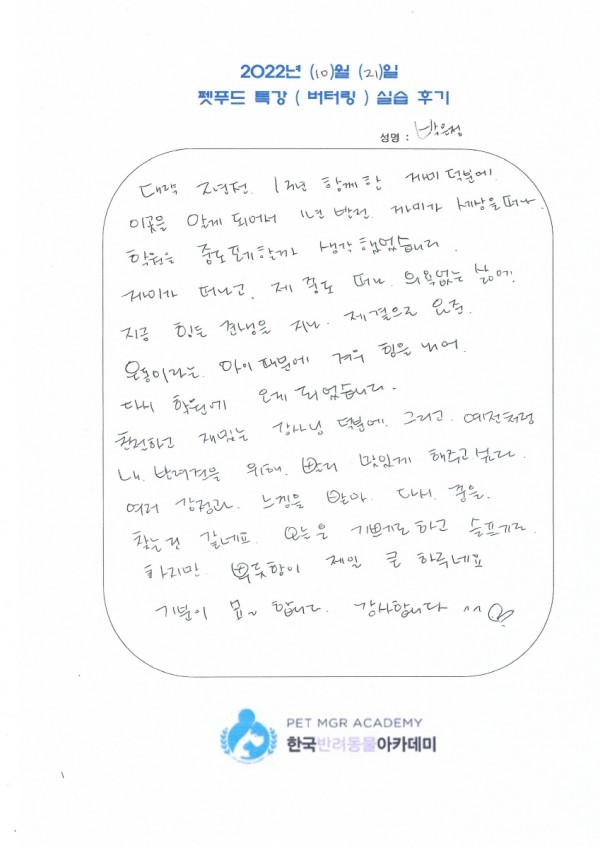 2022년 (10)월 (21)일
펫푸드 특강 ( 버터링 ) 실습 후기
성명 : 박은정
대략 2년전. 13년 함께 한 재미 덕분에.
이곳을 알게 되어서 1년 반전. 재미가 세상을 떠나.
학원을 중도포기할까 생각 했었습니다.
재미가 떠나고, 제 중도 떠나. 의욕없는 삶에.
지금 힘든 견생을 지나. 제곁으로 와준.
오동이라는. 아이 때문에 겨우 힘을 내어.
다시 학원에 오게 되었습니다.
친절하고 재밌는 강사님 덕분에. 그리고. 예전처럼
내. 반려견을 위해. 맛있게 해주고 싶다.
여러 감정과. 느낌을 받아. 다시. 꿈을.
찾는건 같네요. 오늘은 기쁘기도하고 슬프기도.
하지만. 뿌듯함이 제일 큰 하루네요
기분이 묘 합니다. 감사합니다 ^^♡
PET MGR ACADEMY
한국반려동물아카데미